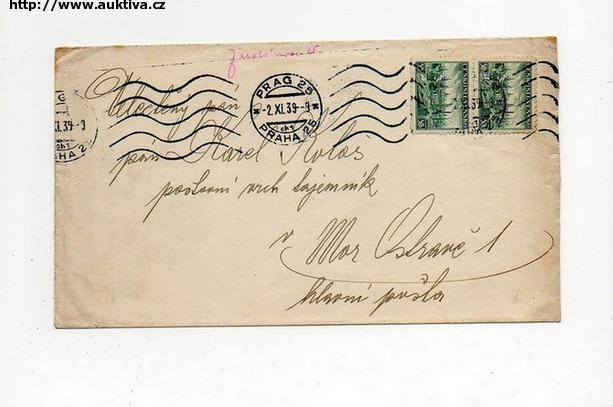 http://www.auktiva.cz
PRAG 25
-2.XI.39-9
ch1
PRAHA 25
XI.39-9
ch1
PRAHA 25
Vážený pán
pán Karel Kolos
poštovní vrch tajemník
v Mor Ostravě 1
hlavní pošta